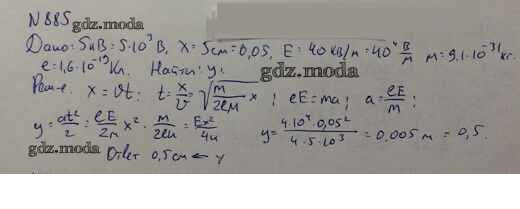 N 885 gdz.moda
Дано: 5кВ = 5·10³ В, x = 5см = 0,05, E = 40 кВ/м = 40⁴ В/м м = 9,1·10⁻³¹ кг.
e = 1,6·10⁻¹⁹ Кл. Найти: y.
Реш-е. x = υt; t = x/υ = √(m/2eU) x ; eE = ma; a = eE/m;
y = at²/2 = eE/2m x² · m/2eU = Ex²/4U y = 4·10⁴·0,05²/4·5·10³ = 0,005 м = 0,5.
gdz.moda Ответ 0,5см ← y
gdz.moda